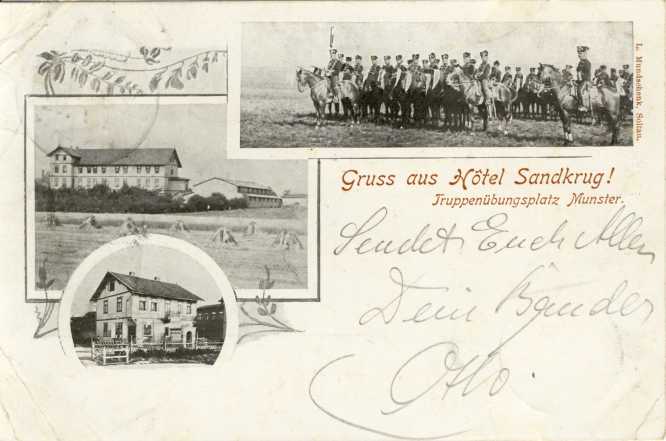 L. Mundschenk, Soltau.
Gruss aus Hôtel Sandkrug!
Truppenübungsplatz Munster.
Sendet Euch Allen
Dein Bruder
Otto.